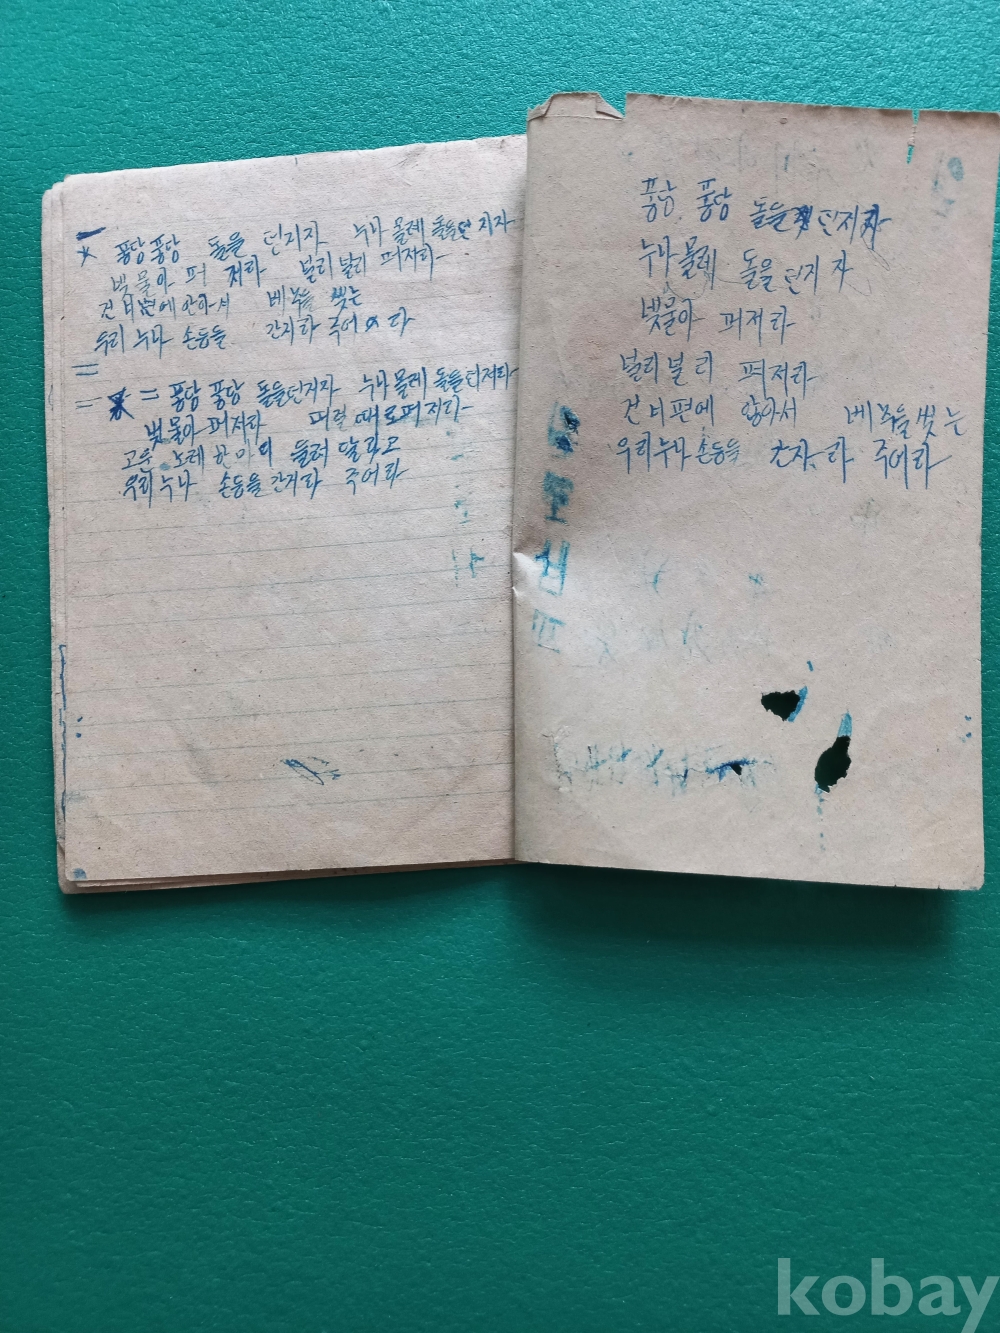 * 퐁당퐁당 돌을 던지자 누나 몰레 돌을던 지자
벅물아 퍼 저라 널리널리 퍼저라
건너편에 안자서 베추을 씻는
우리 누나 손등을 간지라 주어라
=
= * = 퐁당 퐁당 돌을던지자 누나몰레 돌을던저라
벗물아퍼저라 퍼럴때로퍼저라
고운 노레 한마의 들려 달라고
우리누나 손등을간지라 주어라
퐁당 퐁당 돌을 던지자
누나몰레 돌을던지자
벗물아 퍼저라
널리널리 퍼저라
건너편에 앉아서 베추을씻는
우리누나손등을 간지라 주어라
kobay